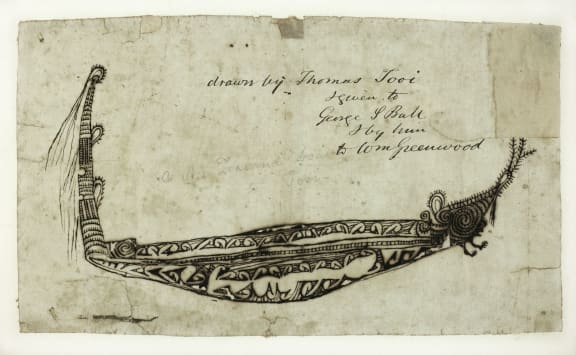 drawn by Thomas Tooi
& given to
George S Bull
& by him
to Wm Greenwood